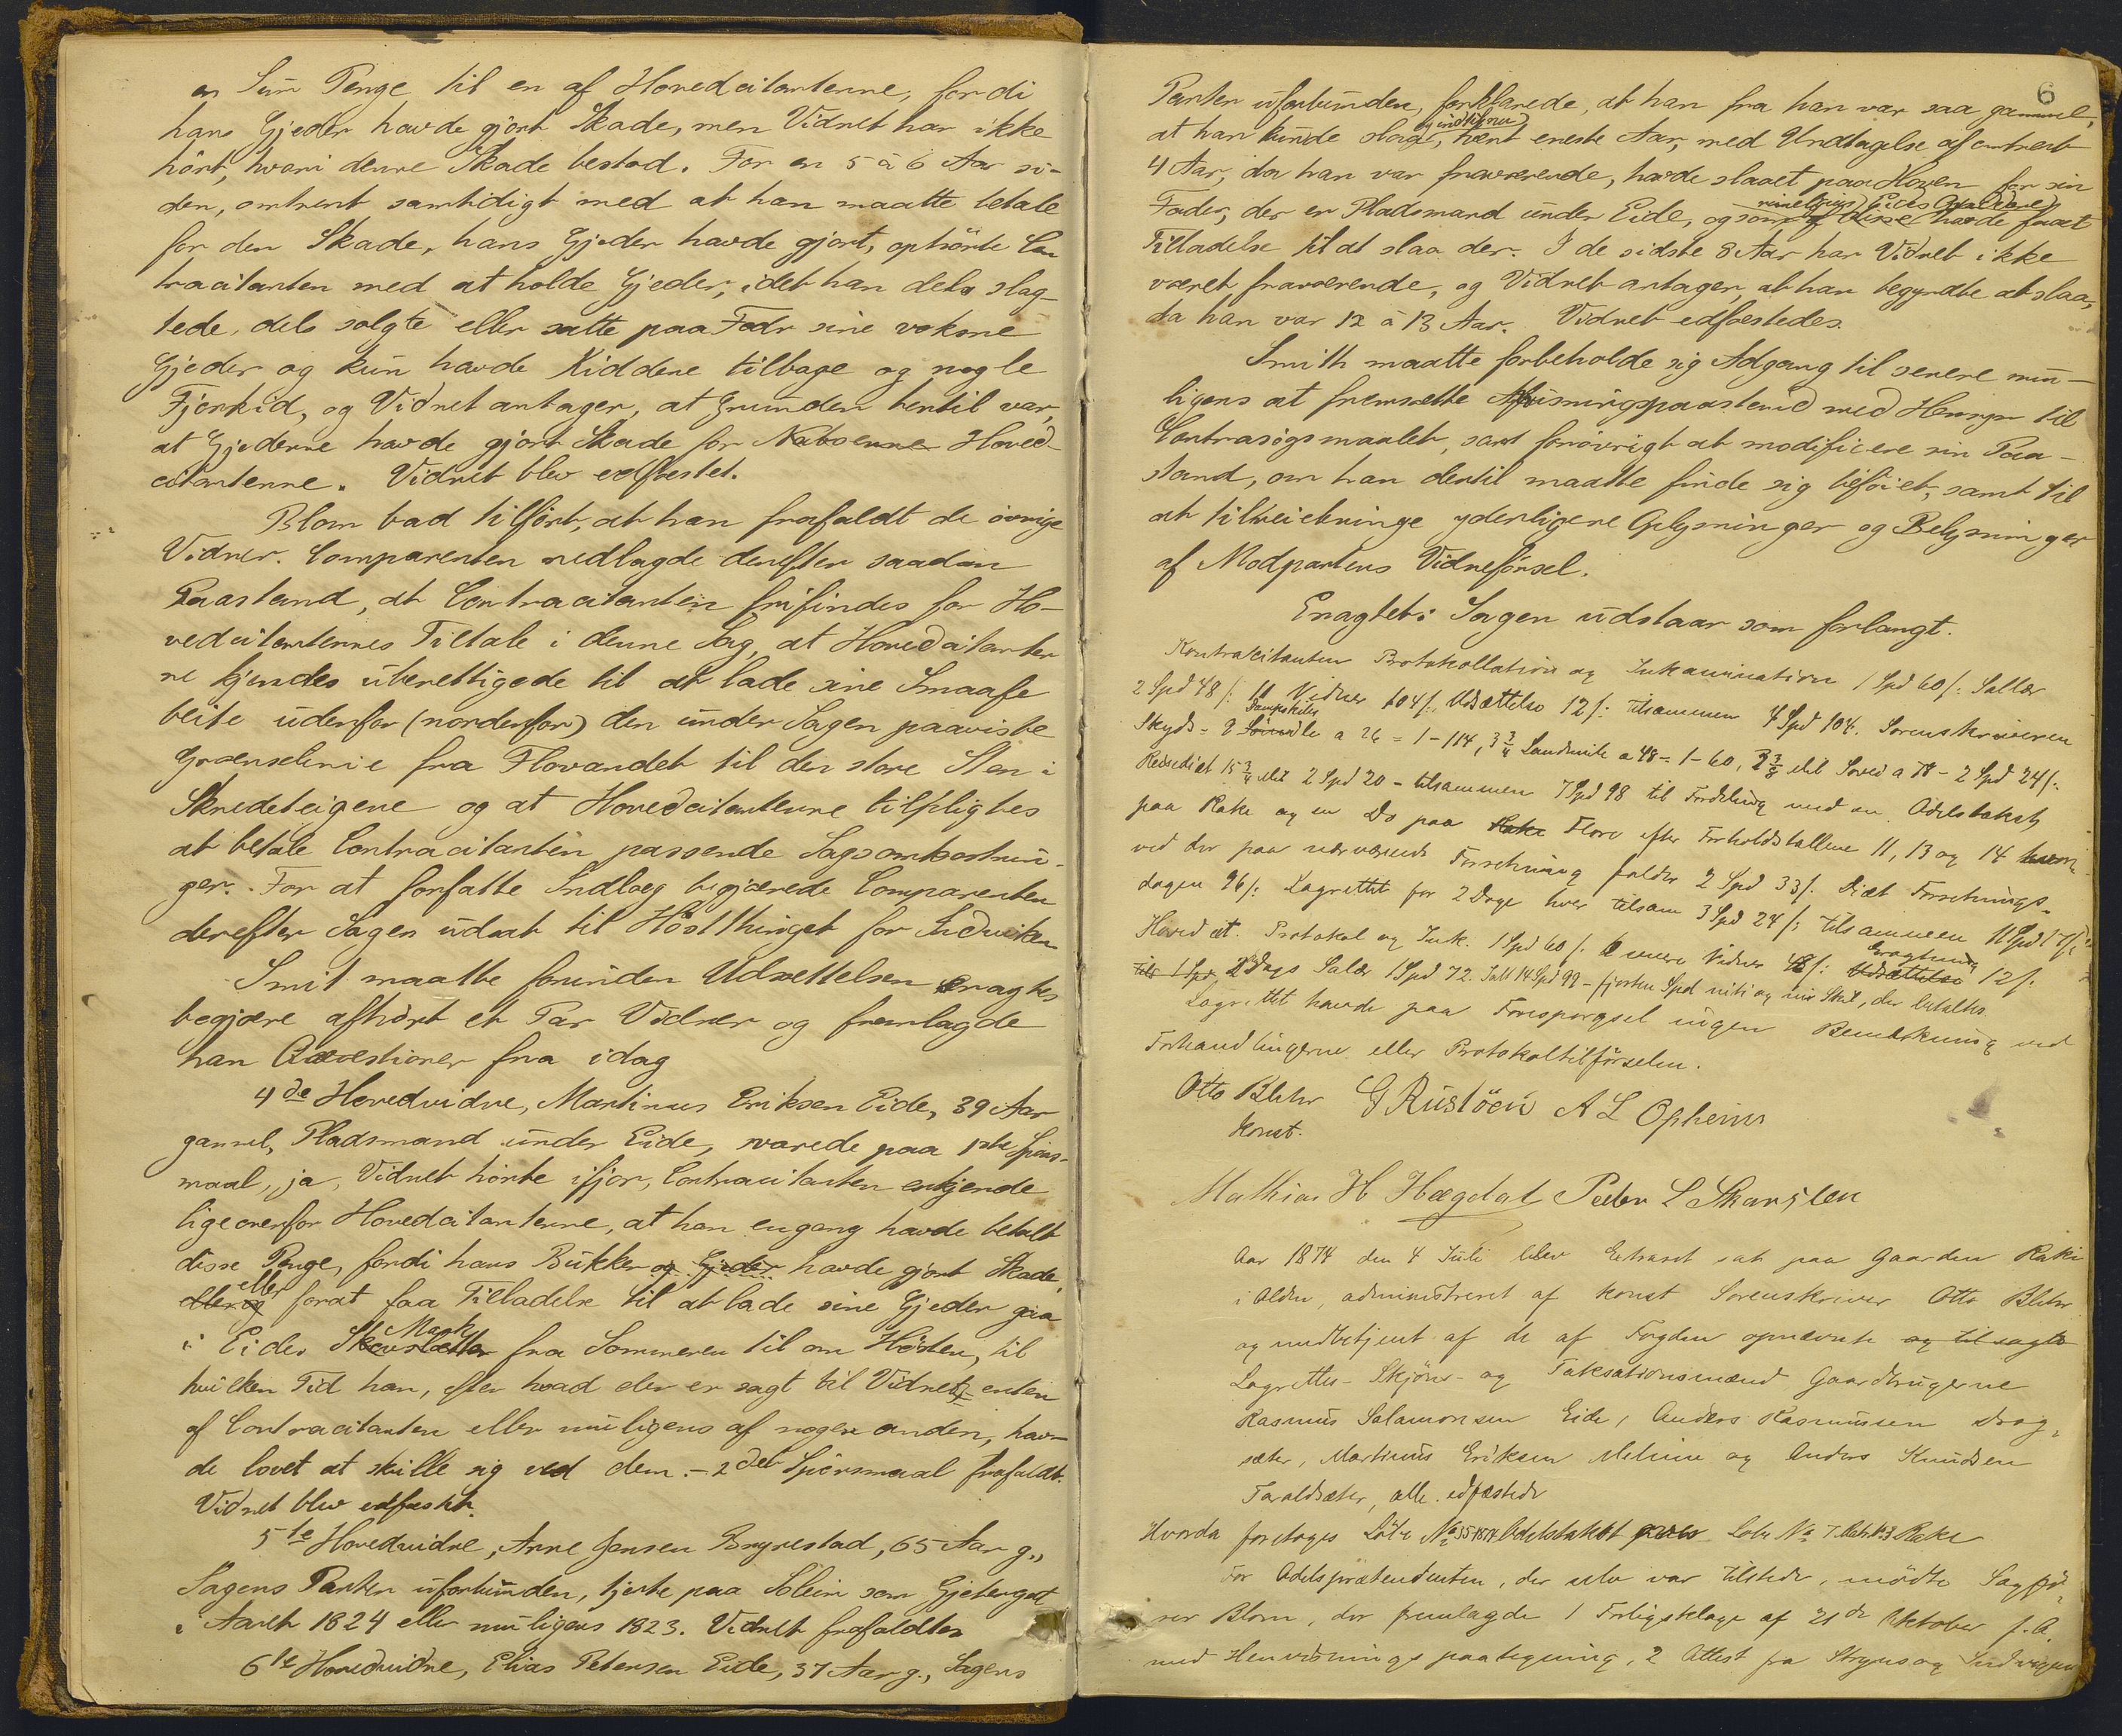 en Sum Penge til en af Hovedcitanterne, fordi
hans Gjeder havde gjort Skade, men Vidnet har ikke
hört, hvori denne Skade bestod. For en 5 à 6 Aar si-
den, omtrent samtidigt med at han maatte betale
for den Skade, hans Gjeder havde gjort, ophörte Con
tracitanten med at holde Gjeder, idet han dels slag-
tede, dels solgte eller satte paa Foder sine voksne
Gjeder og kun havde Kiddene tilbage og nogle
Fjorkid, og Vidnet antager, at Grunden hertil var,
at Gjederne havde gjort Skade for Naboerne Hoved-
citanterne. Vidnet blev edfæstet.
Blom bad tilfört, at han frafaldt de övrige
Vidner. Comparenten nedlagde derefter saadan
Paastand, at Contracitanten frifindes for Ho-
vedcitanternes Tiltale i denne Sag, at Hovedcitanter
ne kjendes uberettigede til at lade sine Smaafe
beite udenfor (nordenfor) den under Sagen paaviste
Grænselinie fra Flovandet til den store Sten i
Skredeteigene og at Hovedcitanterne tilpligtes
at betale Contracitanten passende Sagsomkostnin-
ger. For at forfatte Indlæg begjærede Comparenten
derefter Sagen udsat til Höstthinget for Indviken
Smit maatte forinden Udsættelsen eragtes
begjære afhört et Par Vidner og fremlagde
han Qvæstioner fra idag
4de Hovedvidne, Martinus Eriksen Eide, 39 Aar
gammel, Pladsmand under Eide, svarede paa 1ste Spörs-
maal, ja, Vidnet hörte ifjor, Contracitanten erkjende
ligeoverfor Hovedcitanterne, at han engang havde betalt
disse Penge, fordi hans Bukker og Gjeder havde gjort Skade,
eller
eller og forat faa Tilladelse til at lade sine Gjeder gaa
Mark
i Eides fra Sommeren til om Hösten, til
hvilken Tid han, efter hvad der er sagt til Vidnet, enten
af Contracitanten eller muligens af nogen anden, hav-
de lovet at skille sig ved dem. – 2det Spörsmaal frafaldt.
Vidnet blev edfæstet.
5te Hovedvidne, Arne Jensen Bryrestad, 65 Aar g.,
Sagens Parter uforbunden, tjente paa Solein som Gjetergut
i Aaret 1824 eller muligens 1823. Vidnet frafaldtes
6te Hovedvidne, Elias Petersen Eide, 37 Aar g., Sagens
6
Parter uforbunden, forklarede, at han fra han var saa gammel,
og indtil nu
at han kunde slaa, hvert eneste Aar, med Undtagelse af omtrent
4 Aar, da han var fraværende, havde slaaet paa Hoven for sin
rimeligvis Eides Opsiddere
Fader, der er Pladsmand under Eide, og som af disse havde faaet
Tilladelse til at slaa der. I de sidste 8 Aar har Vidnet ikke
været fraværende, og Vidnet antager, at han begyndte at slaa,
da han var 12 à 13 Aar. Vidnet edfæstedes.
Smith maatte forbeholde sig Adgang til senere mu-
ligens at fremsætte Afvisningspaastand med Hensyn til
Contrasögsmaalet, samt forövrigt at modificere sin Paa-
stand, om han dertil maatte finde sig beföiet, samt til
at tilveiebringe yderligere Oplysninger og Belysninger
af Modpartens Vidneförsel.
Eragtet: Sagen udstaar som forlangt.
Kontracitanten Protokollation og Inkamination 1 Spd 60 /: Sallær
2 Spd 48 /: 11 Vidner 104 /: Udsættelse 12 /: tilsammen 4 Spd 104. Sorenskriveren
Dampskibs
Skyds - 8 Sömile a 26 = 1 - 114, 3 3/4 Landmile a 48 = 1 - 60, 3 3/8 Mil Soved a 78 - 2 Spd 24 /:
Reisediæt 15 3/4 Mil 2 Spd 20 - tilsammen 7 Spd 98 til Fordeling med en Odelstakst
paa Rake og en Do paa Rake Flore efter Forholdstallene 11, 13 og 14 hvor-
ved der paa nærværende Forretning falder 2 Spd 33 /. Diæt Forretnings-
dagen 96 /: Lagrettet for 2 Dage hver tilsam 3 Spd 24 /: tilsammen 11 Spd 17 /:
Hoved cit. Protokol og Ink. 1 Spd 60 /: 6 Vidner 48 /: Eragtning
Udsættelse 12 /.
2 Dags Salær 1 Spd 72. Talt 14 Spd 99 - fjorten Spd niti og ni Skil, der betaltes.
Lagrettet havde paa Forespörgsel ingen Bemerkning ved
Forhandlingerne eller Protokoltilförselen.
Otto Blehr G Rustöen A L Opheim
konst.
Mathias H Hægdal Peder L Skarsten
Aar 1874 den 4 Juli blev Extraret sat paa Gaarden Rake
i Olden, administreret af konst Sorenskriver Otto Blehr
og medbetjent af de af Fogden opnævnte og tilsagte
Lagrettes- Skjöns- og Taksationsmænd Gaardbrugerne
Rasmus Salamonsen Eide, Anders Rasmussen Drag-
sæter, Martinus Eriksen Melheim og Anders Knudsen
Taraldsæter, alle edfæstede
Hvorda foretoges Löbe No 35 1874 Odelstakst Löbe No 7 Rake
For Odelsprætendenten, der selv var tilstede, mödte Sagfö-
rer Blom, der fremlagde 1 Forligsklage af 21de Oktober f. A.
med Henvisningspaategning, 2 Attest fra Stryns og Indvigen